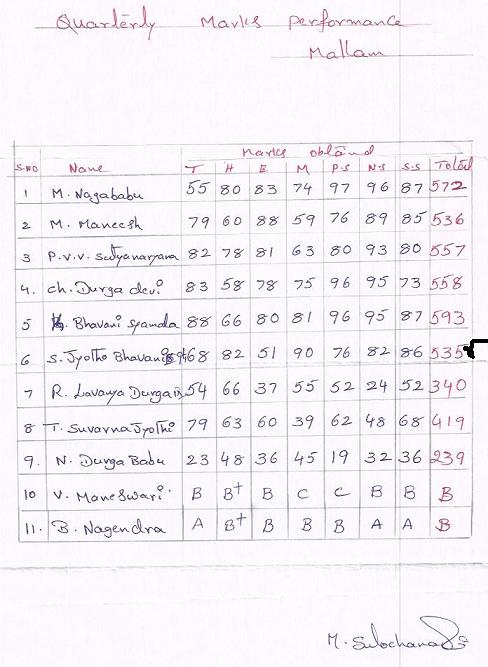 Quarterly Marks Performance
Mallam
Marks obtaind
S.NO Name T H E M P.S N.S S.S Total
1 M. Nagababu 55 80 83 74 97 96 87 572
2 M. Maneesh 79 60 88 59 76 89 85 536
3 P.V.V. Satyanaryana 82 78 81 63 80 93 80 557
4. Ch. Durga devi 83 58 78 75 96 95 73 558
5 Bhavani syamala 88 66 80 81 96 95 87 593
6 S. Jyothi Bhavani 68 82 51 90 76 82 86 535
7 R. Lavanya Durga 54 66 37 55 52 24 52 340
8 T. Suvarna Jyothi 79 63 60 39 62 48 68 419
9. N. Durga Babu 23 48 36 45 19 32 36 239
10 V. Maneswari B B+ B C C B B B
11. B. Nagendra A B+ B B B A A B
M. Sulochana